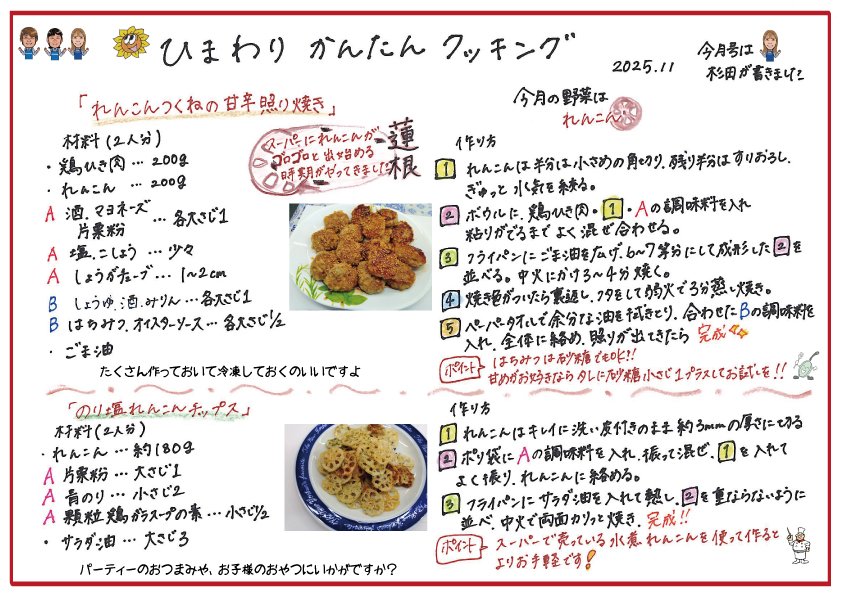 ひまわり かんたん クッキング
2025.11
今月号は
杉田が書きました
「れんこんつくねの甘辛照り焼き」
材料(2人分)
・鶏ひき肉…200g
・れんこん…200g
A 酒、マヨネーズ
片栗粉 …各大さじ1
A 塩、こしょう…少々
A しょうがチューブ…1〜2cm
B しょうゆ、酒、みりん…各大さじ1
B はちみつ、オイスターソース…各大さじ1/2
・ごま油
たくさん作っておいて冷凍しておくのいいですよ
蓮根
スーパーにれんこんが
ゴロゴロと出始める
時期がやってきました
今月の野菜は
れんこん
作り方
1 れんこんは半分は小さめの角切り、残り半分はすりおろし、
ぎゅっと水気を絞る。
2 ボウルに、鶏ひき肉・1・Aの調味料を入れ
粘りがでるまでよく混ぜ合わせる。
3 フライパンにごま油を広げ、6〜7等分にして成形した2を
並べる。中火にかけ3〜4分焼く。
4 焼き色がついたら裏返し、フタをして弱火で3分蒸し焼き。
5 ペーパータオルで余分な油を拭きとり、合わせたBの調味料を
入れ、全体に絡め、照りが出てきたら 完成
ポイント はちみつは砂糖でもOK!!
甘めがお好きなら タレに砂糖小さじ1プラスしてお試しを!!
「のり塩れんこんチップス」
材料(2人分)
・れんこん…約180g
A 片栗粉…大さじ1
A 青のり…小さじ2
A 顆粒鶏ガラスープの素…小さじ1/2
・サラダ油…大さじ3
パーティーのおつまみや、お子様のおやつにいかがですか?
作り方
1 れんこんはキレイに洗い皮付きのまま約3mmの厚さに切る
2 ポリ袋にAの調味料を入れ、振って混ぜ、1を入れて
よく振り、れんこんに絡める。
3 フライパンにサラダ油を入れて熱し、2を重ならないように
並べ、中火で両面カリッと焼き、完成!!
ポイント スーパーで売っている水煮れんこんを使って作ると
よりお手軽です!